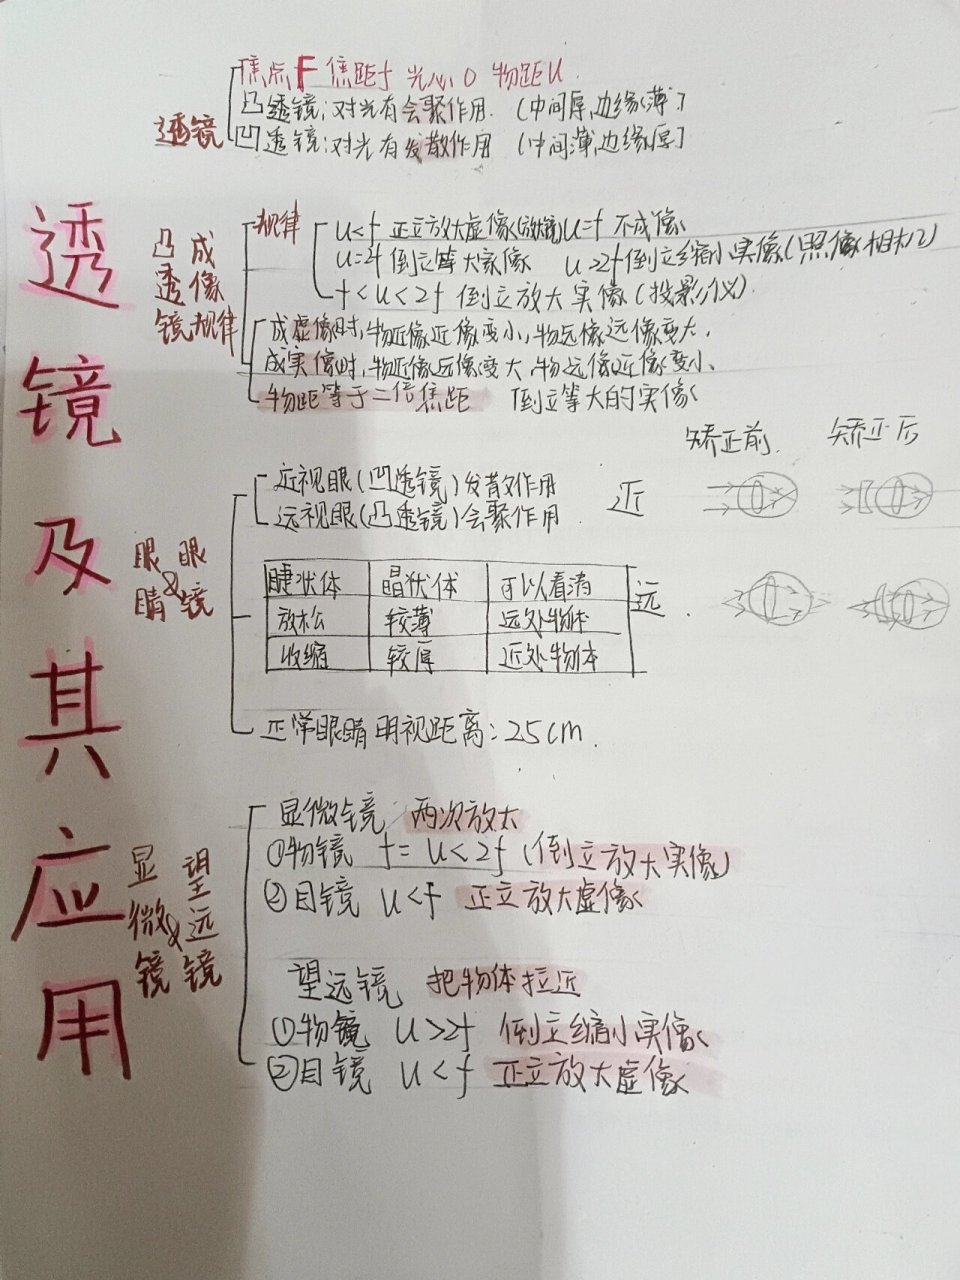 透镜及其应用
透镜
焦点F 焦距f 光心O 物距u
凸透镜:对光有会聚作用.(中间厚,边缘薄)
凹透镜:对光有发散作用 (中间薄,边缘厚)
凸透镜
成像规律
规律
u<f 正立放大虚像(放镜) u=f 不成像
u=2f 倒立等大实像 u>2f 倒立缩小实像(照像相机)
f<u<2f 倒立放大实像(投影仪)
成虚像时,物近像近像变小,物远像远像变大.
成实像时,物近像远像变大,物远像近像变小、
物距等于二倍焦距 倒立等大的实像
矫正前 矫正后
眼睛&眼镜
近视眼(凹透镜)发散作用 近
远视眼(凸透镜)会聚作用
睫状体 晶状体 可以看清 远.
放松 较薄 远处物体
收缩 较厚 近处物体
正常眼睛明视距离:25cm.
显微镜&望远镜
显微镜 两次放大
①物镜 f= u<2f (倒立放大实像)
②目镜 u<f 正立放大虚像
望远镜 把物体拉近
①物镜 u>2f 倒立缩小实像
②目镜 u<f 正立放大虚像